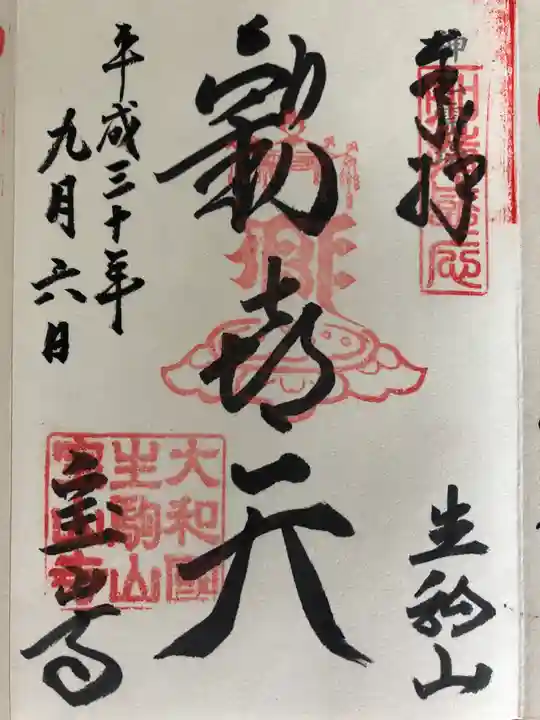 奉拝
生駒山
歓喜天
大和國
生駒山
宝山寺
宝山寺
平成三十年
九月六日